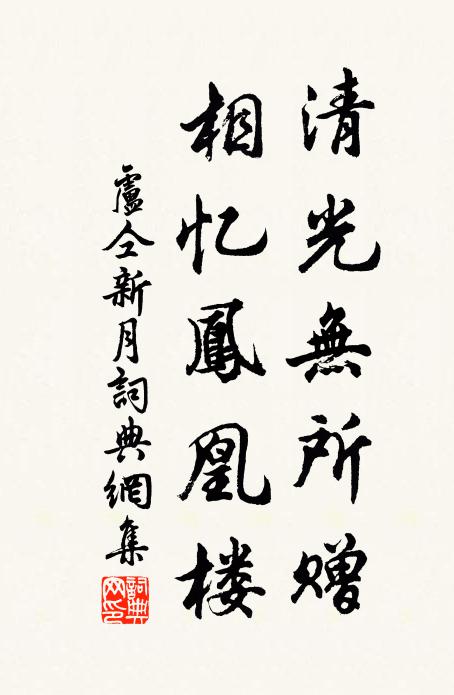 清光無所赠
相忆鳳凰楼
盧仝新月詞典網集
詞典網印